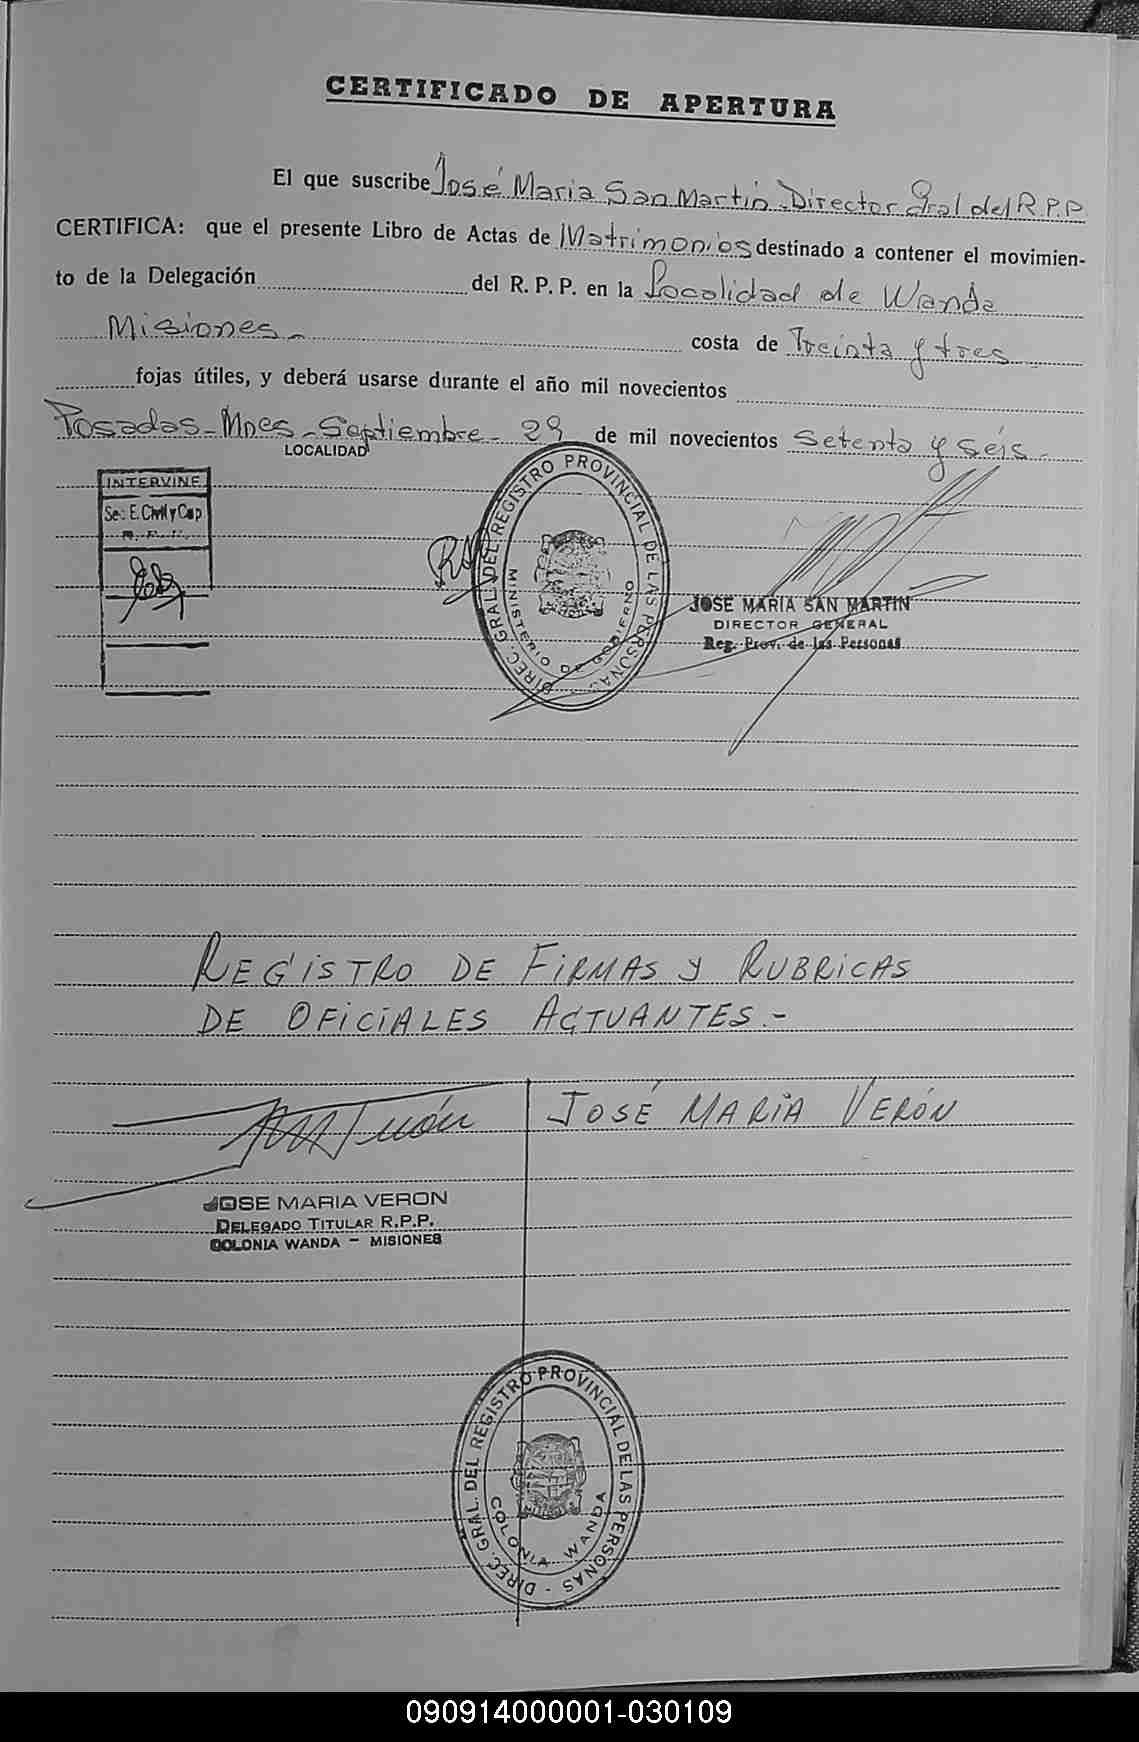 CERTIFICADO DE APERTURA
El que suscribe José Maria San Martin - Director Gral del R.P.P.
CERTIFICA: que el presente Libro de Actas de Matrimonios destinado a contener el movimien-
to de la Delegación del R. P. P. en la Localidad de Wanda
Misiones - costa de Treinta y tres
fojas útiles, y deberá usarse durante el año mil novecientos
Posadas - Mnes - Septiembre - 29 de mil novecientos Setenta y séis -
LOCALIDAD
INTERVINE
Sec. E. Civil y Cap
DIREC. GRAL. DEL REGISTRO PROVINCIAL DE LAS PERSONAS
MINISTERIO DE GOBIERNO
JOSE MARIA SAN MARTIN
DIRECTOR GENERAL
Reg. Prov. de las Personas
REGISTRO DE FIRMAS Y RUBRICAS
DE OFICIALES ACTUANTES.-
JOSÉ MARIA VERÓN
JOSE MARIA VERON
DELEGADO TITULAR R.P.P.
COLONIA WANDA - MISIONES
DIREC. GRAL. DEL REGISTRO PROVINCIAL DE LAS PERSONAS -
COLONIA WANDA
090914000001-030109